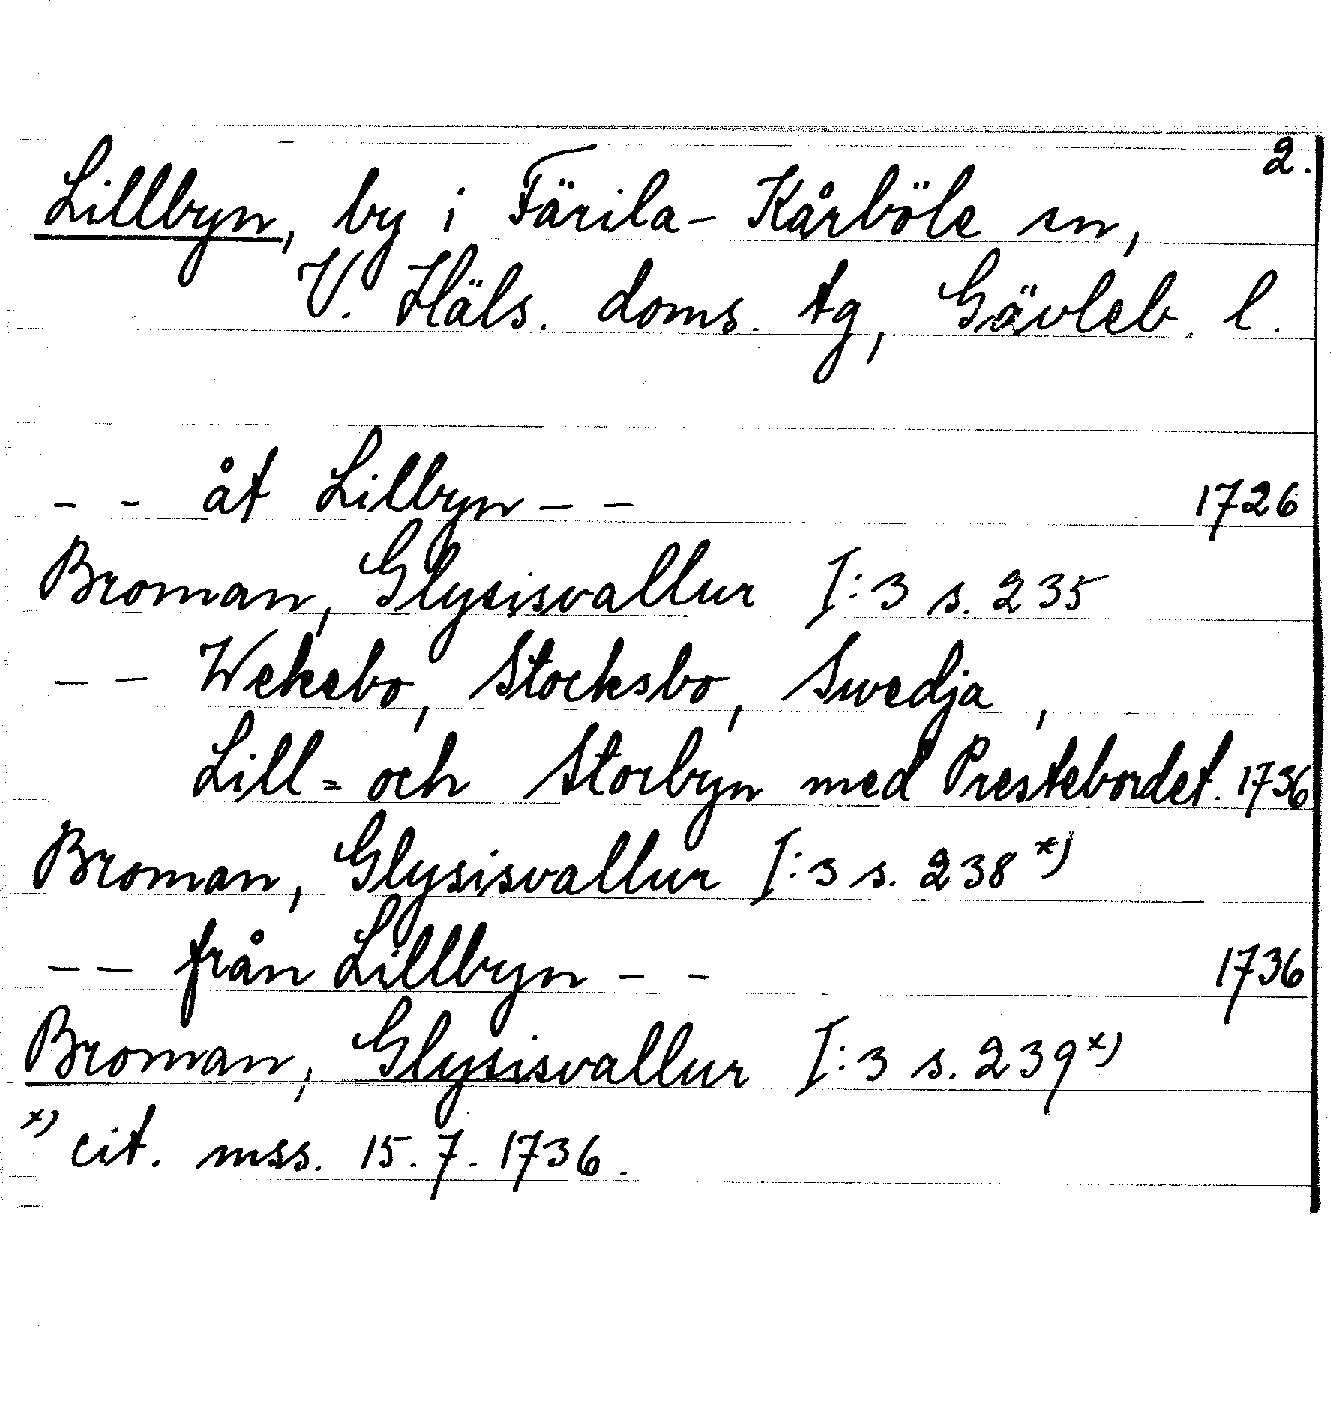 2.
Lillbyn, by i Färila-Kårböle sn,
V. Häls. doms. tg, Gävleb. l.
- - åt Lilbyn - - 1726
Broman, Glysisvallur I:3 s. 235
- - Wekebo, Stocksbo, Swedja,
Lill= och Storbyn med Prestebordet. 1736
Broman, Glysisvallur I:3 s. 238 x)
- - från Lillbyn - - 1736
Broman, Glysisvallur I:3 s. 239 x)
x) cit. mss. 15.7.1736.